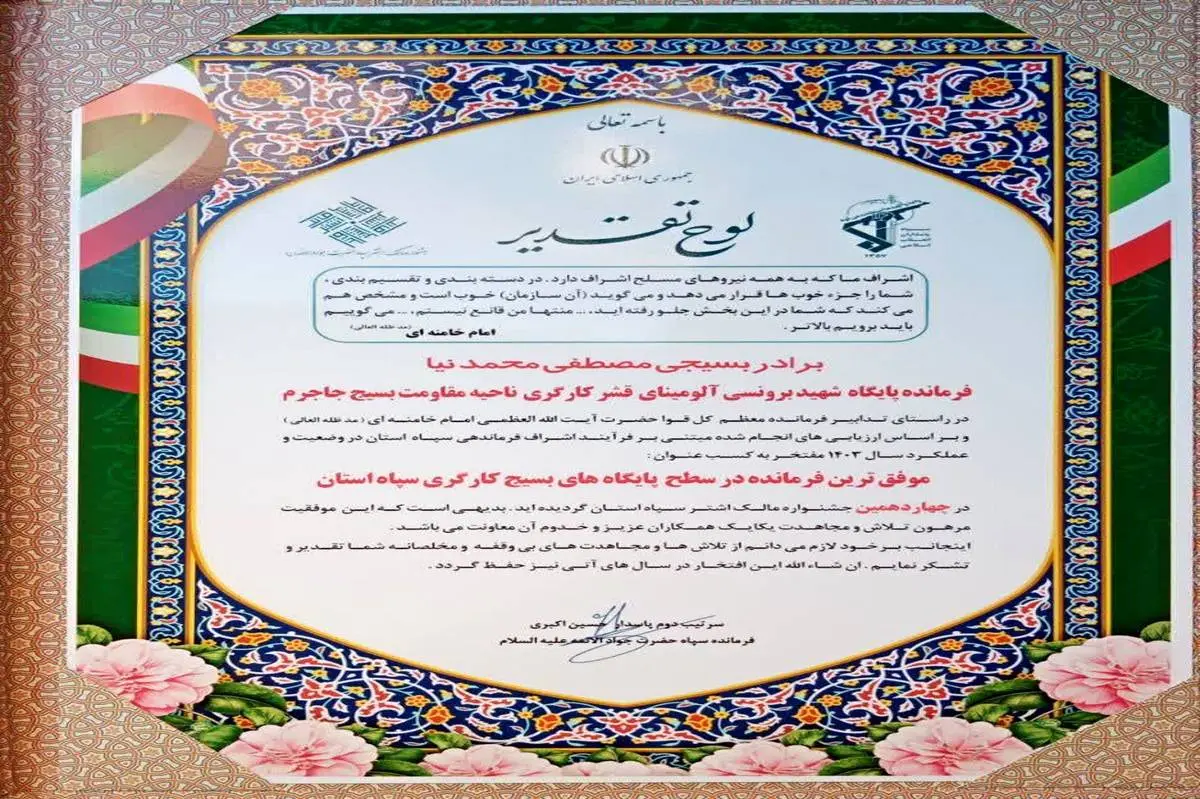 باسمه تعالی
جمهوری اسلامی ایران
لوح تقدیر
سپاه
پاسداران
انقلاب
اسلامی
۱۳۵۷
اشراف ما که به همه نیروهای مسلح اشراف دارد. در دسته بندی و تقسیم بندی،
شما را جزء خوب ها قرار می دهد و می گوید (آن سازمان) خوب است و مشخص هم
می کند که شما در این بخش جلو رفته اید، ... منتها من قانع نیستم، ... می گوییم
باید برویم بالاتر.
امام خامنه ای (مد ظله العالی)
برادر بسیجی مصطفی محمد نیا
فرمانده پایگاه شهید برونسی آلومینای قشر کارگری ناحیه مقاومت بسیج جاجرم
در راستای تدابیر فرمانده معظم کل قوا حضرت آیت الله العظمی امام خامنه ای (مد ظله العالی)
و بر اساس ارزیابی های انجام شده مبتنی بر فرآیند اشراف فرماندهی سپاه استان در وضعیت و
عملکرد سال ۱۴۰۳ مفتخر به کسب عنوان:
موفق ترین فرمانده در سطح پایگاه های بسیج کارگری سپاه استان
در چهاردهمین جشنواره مالک اشتر سپاه استان گردیده اید. بدیهی است که این موفقیت
مرهون تلاش و مجاهدت یکایک همکاران عزیز و خدوم آن معاونت می باشد.
اینجانب بر خود لازم می دانم از تلاش ها و مجاهدت های بی وقفه و مخلصانه شما تقدیر و
تشکر نمایم. ان شاء الله این افتخار در سال های آتی نیز حفظ گردد.
سرتیپ دوم پاسدار حسین اکبری
فرمانده سپاه حضرت جوادالائمه علیه السلام